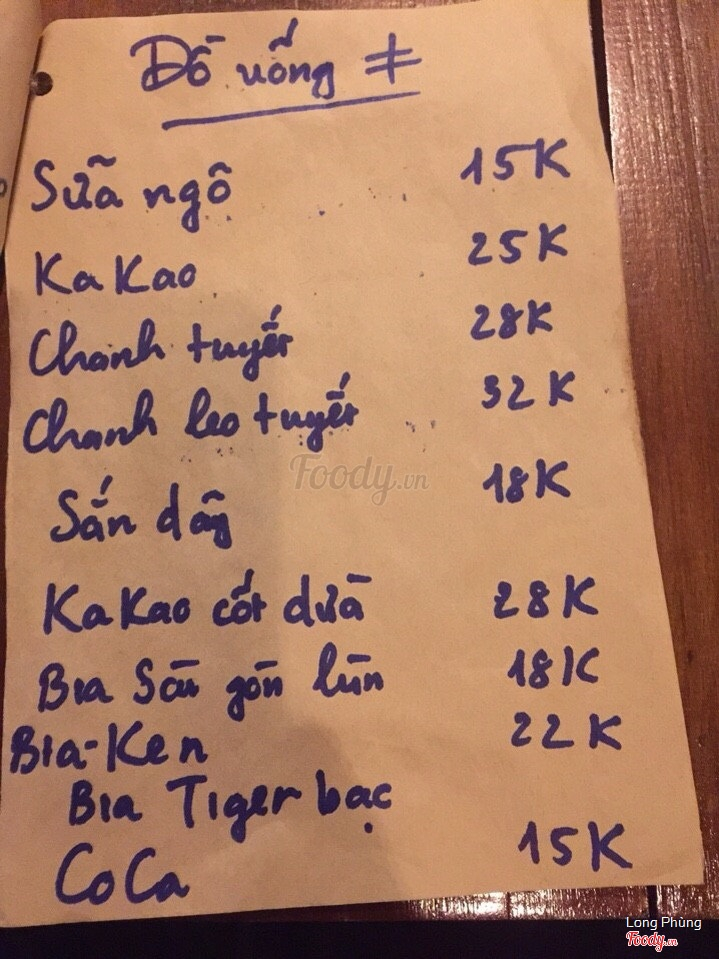 Đồ uống ≠
Sữa ngô 15K
KaKao 25K
Chanh tuyết 28K
Chanh leo tuyết 32K
Sắn dây 18K
KaKao cốt dừa 28K
Bia Sài gòn lùn 18K
Bia-Ken 22K
Bia Tiger bạc
CoCa 15K
Foody.vn
Long Phùng
Foody.vn